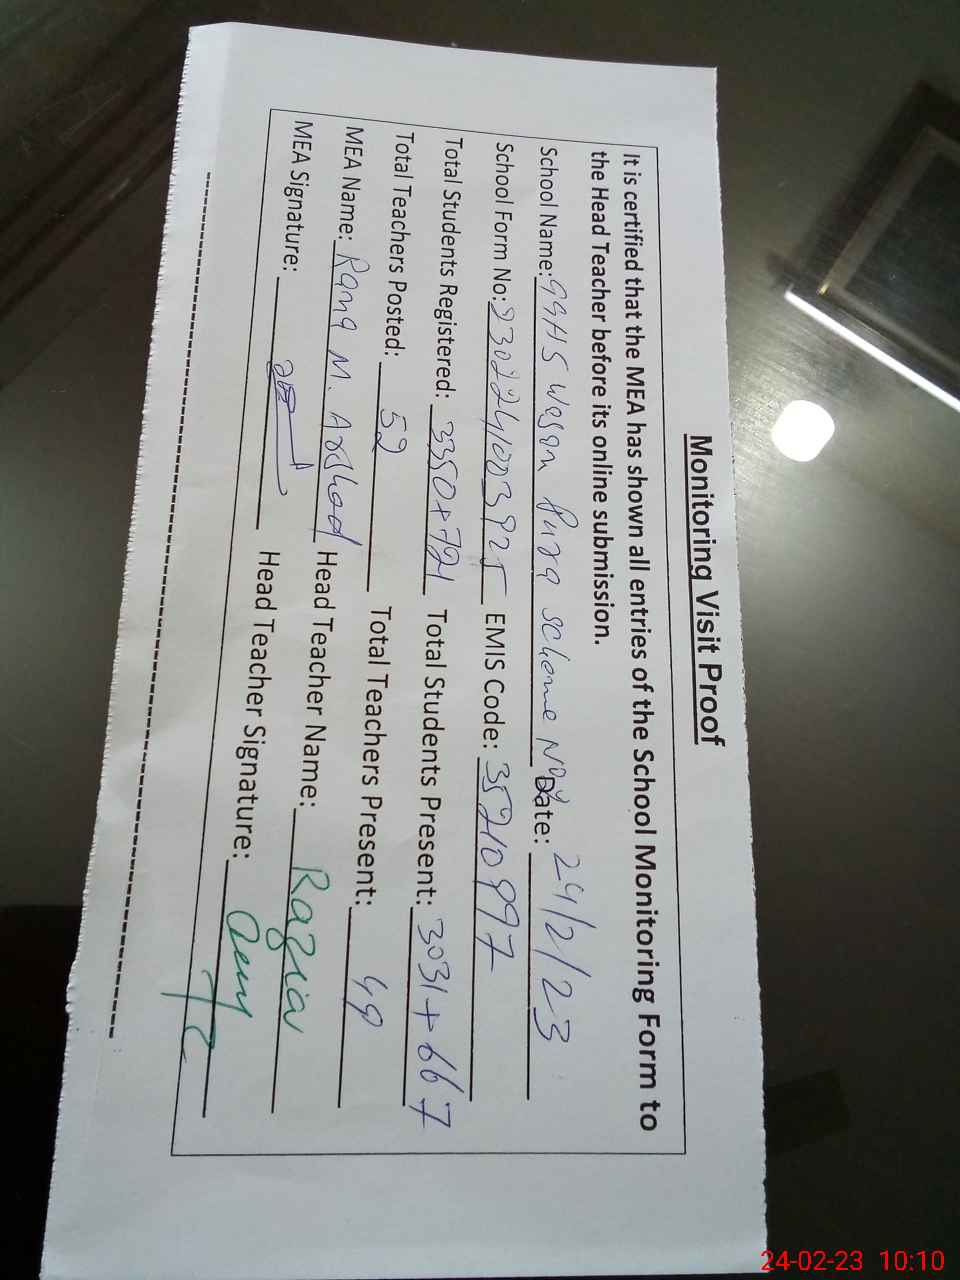 Monitoring Visit Proof
It is certified that the MEA has shown all entries of the School Monitoring Form to
the Head Teacher before its online submission.
School Name: GGHS Wasan Pura Scheme No 2 Date: 24/2/23
School Form No: 2302241003925 EMIS Code: 35210997
Total Students Registered: 3350+721 Total Students Present: 3031+667
Total Teachers Posted: 52 Total Teachers Present: 49
MEA Name: Rana M. Arshad Head Teacher Name: Razia
MEA Signature: Head Teacher Signature:
24-02-23 10:10